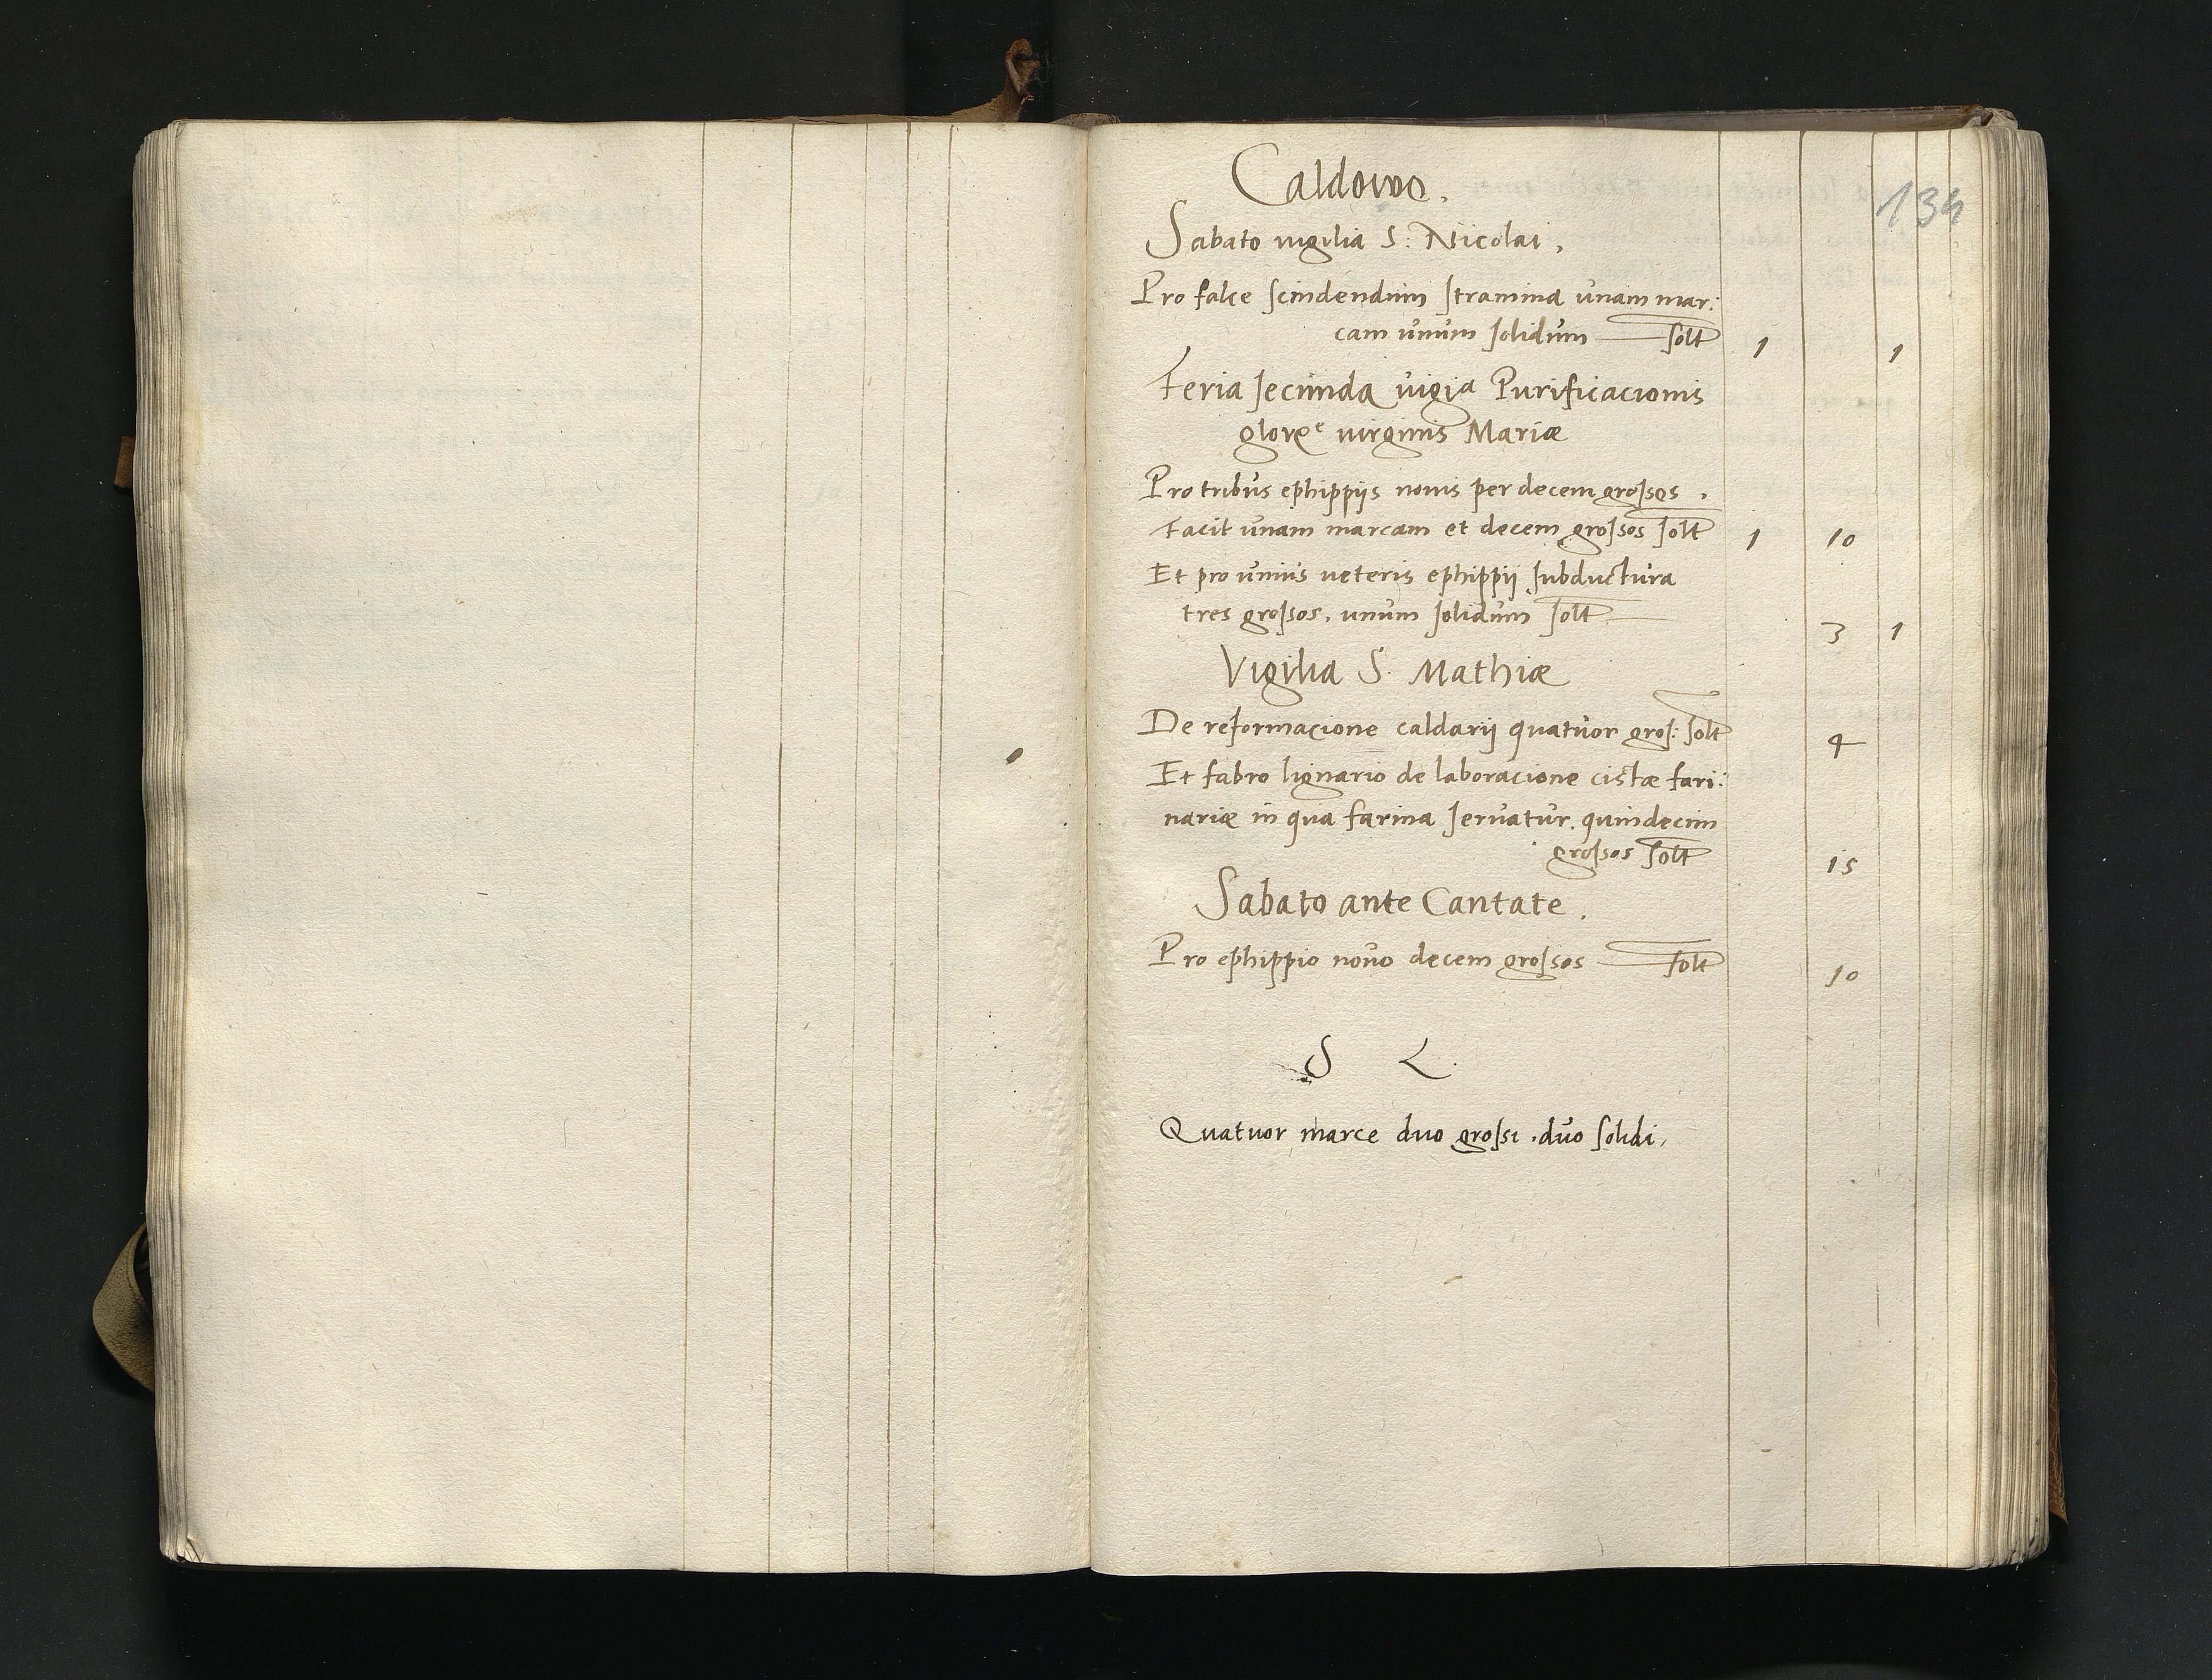 134
Caldowo.
Sabato vigilia S: Nicolai.
Pro falce scindendum stramina unam mar:
cam unum solidum solt 1 1
Feria secunda vigia Purificacionis
glorae virginis Mariæ
Pro tribus ephippijs novis per decem grossos.
Facit unam marcam et decem grossos solt 1 10
Et pro unius veteris ephippij subductura
tres grossos. unum solidum solt 3 1
Vigilia S. Mathiæ
De reformacione caldarij quatuor gros: solt 4
Et fabro lignario de laboracione cistæ fari:
nariæ in qua farina servatur. quindecim
grossos solt 15
Sabato ante Cantate.
Pro ephippio novo decem grossos solt 10
S L.
Quatuor marce duo grossi. duo solidi.